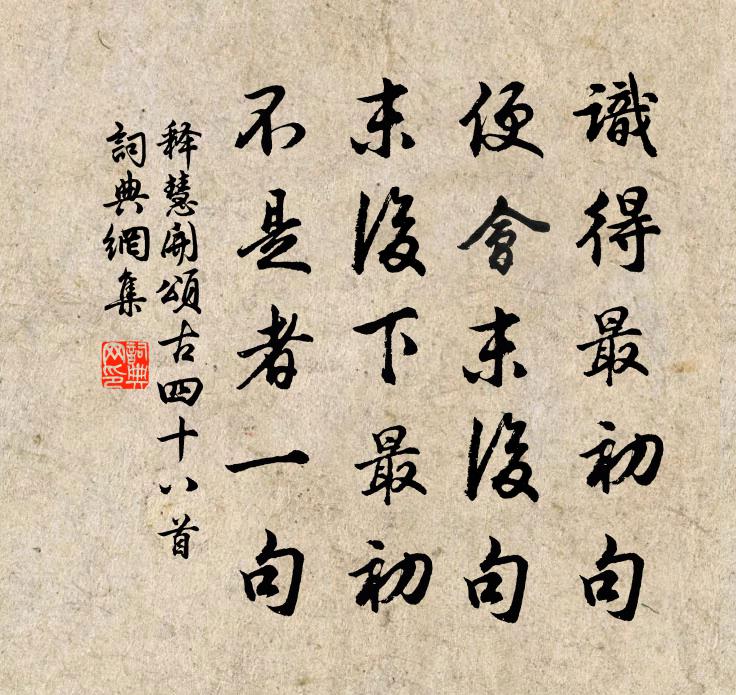 識得最初句
便會末後句
末後下最初
不是者一句
释慧開頌古四十八首
詞典網集
詞典网印